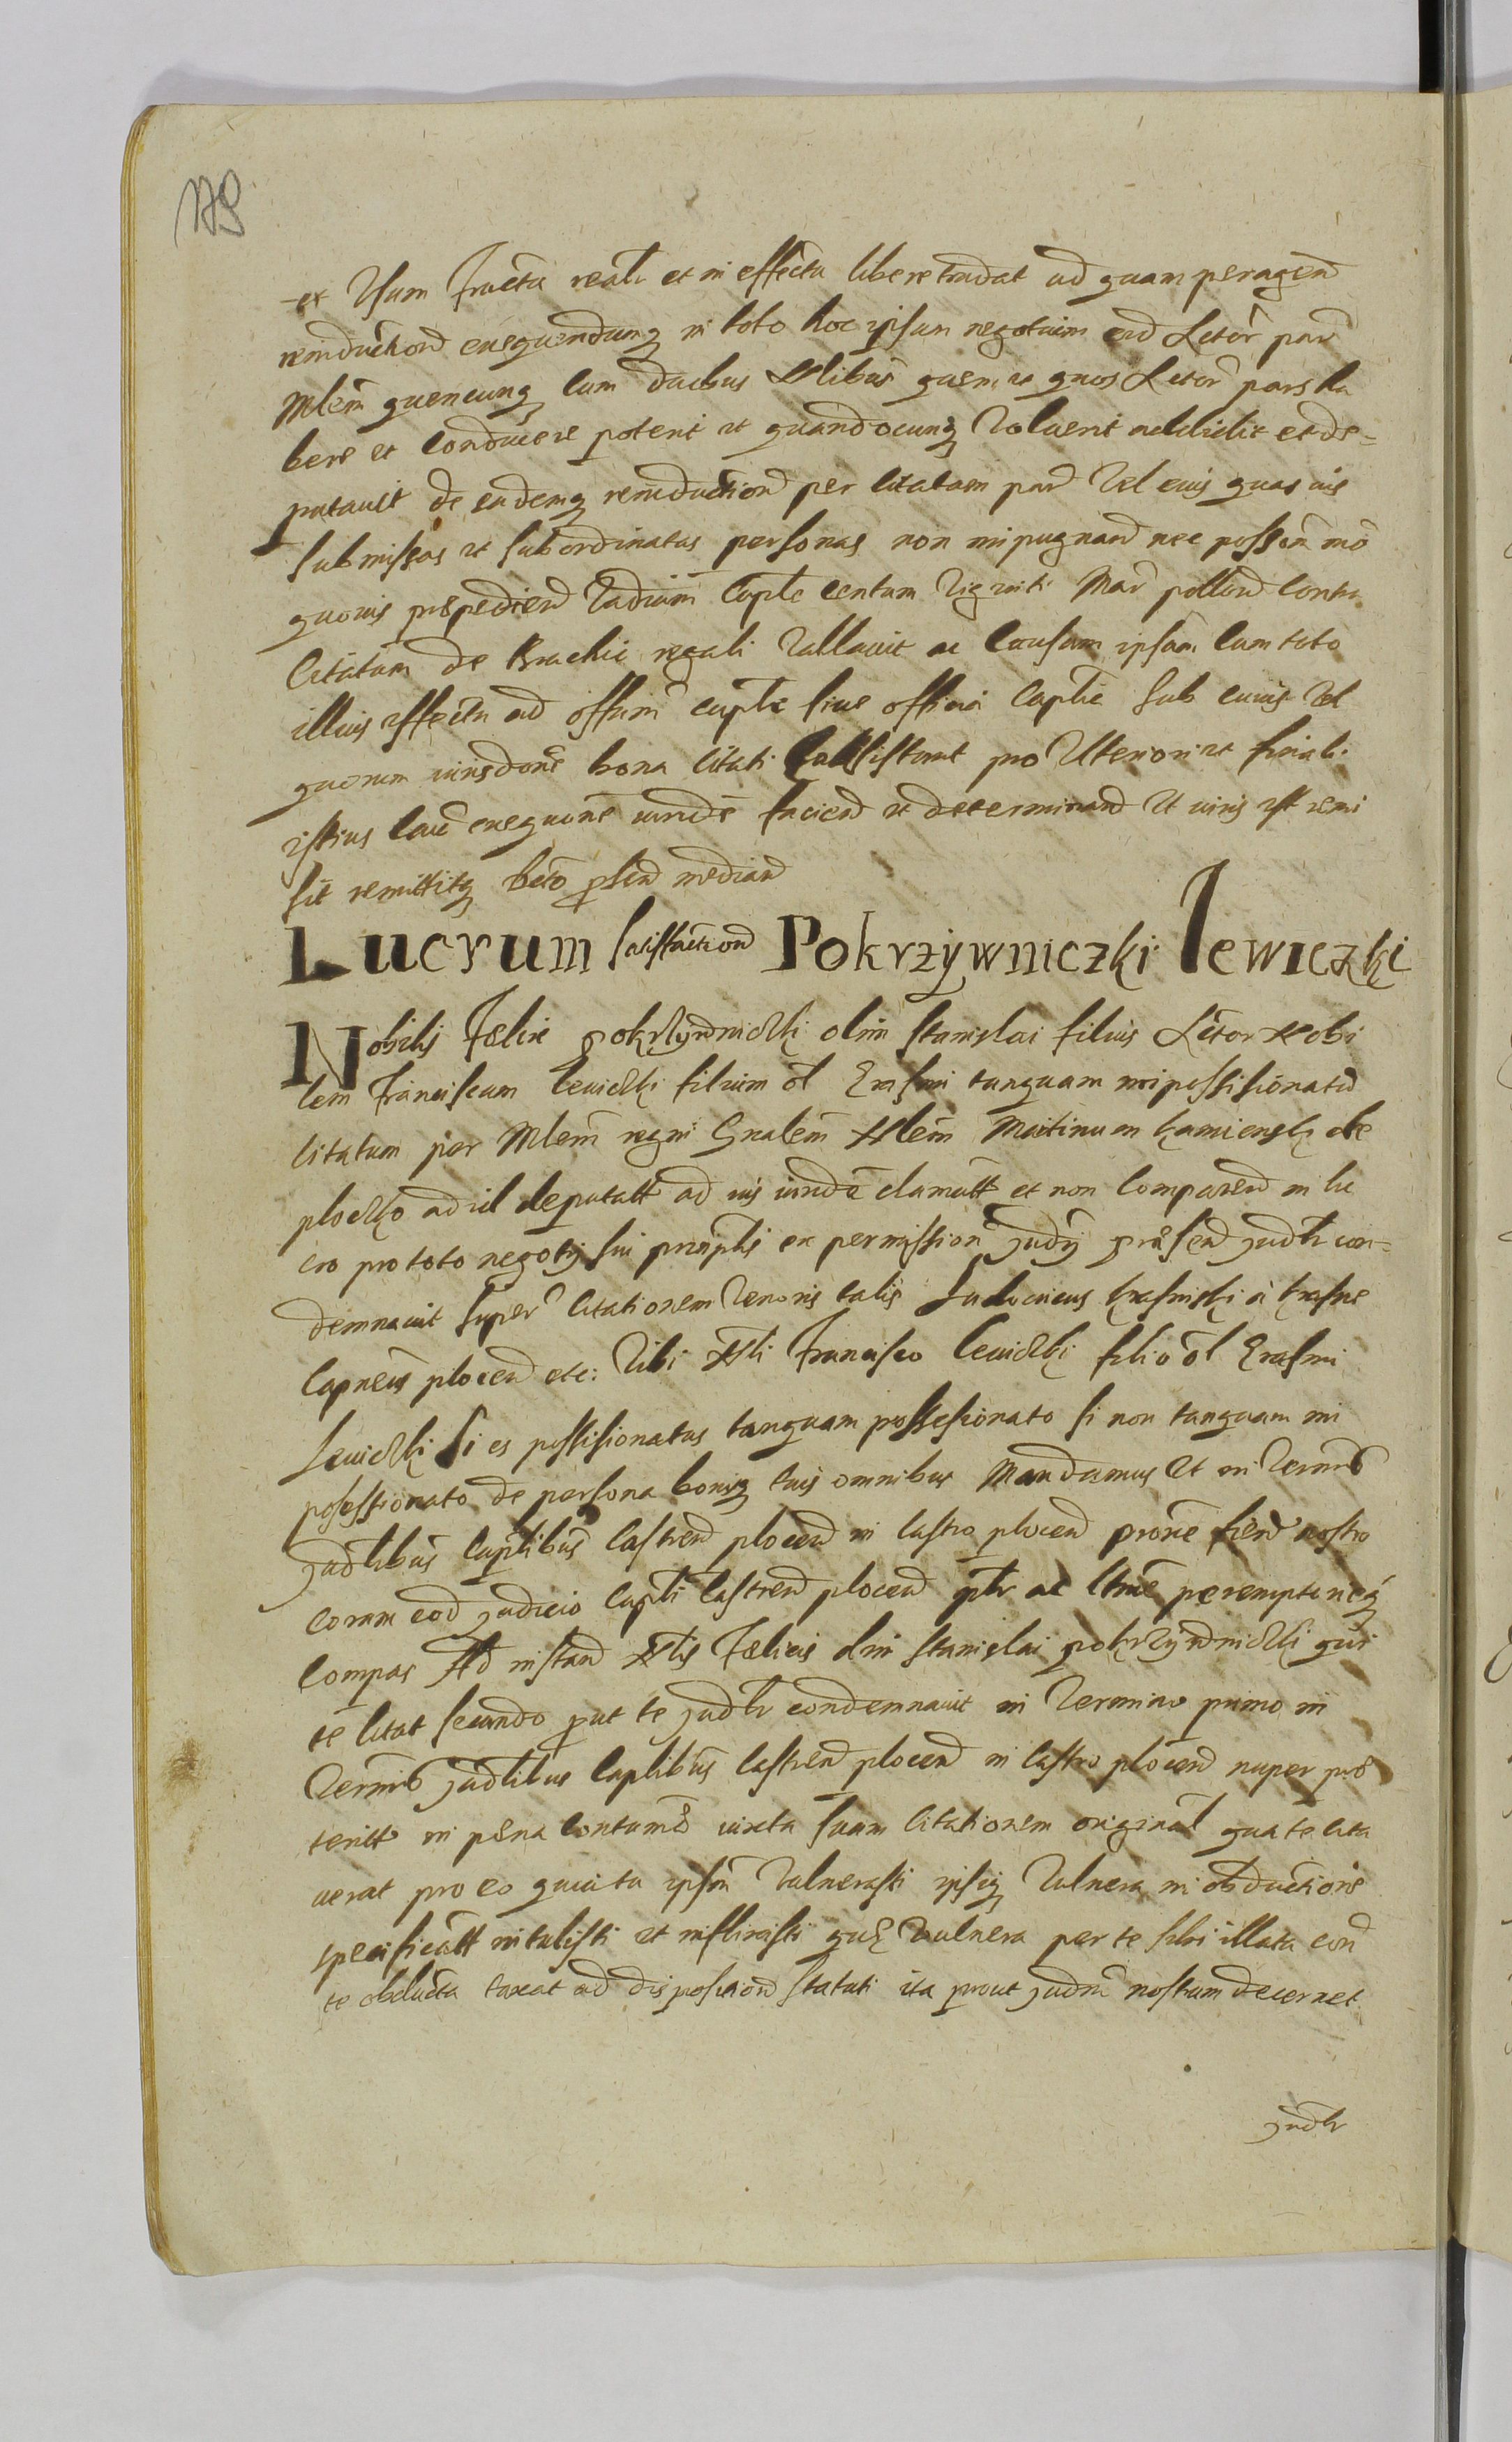 179
et Usum fructu reali et in effectu libere tradat ad quam peragend
reinduction exequendumq in toto hoc ipsum negotium eid Actor par
Mlem quencunq cum duobus Nlibus quem et quos Actor pars ha
bere et conducere poterit et quandocunq Voluerit addidit et de-
putauit de eademq reinduction per citatam par Vel eius quas uis
submissas et subordinatas personas non impugnand nec possem mo
quouis prepediend Vadium Caple centum Viginti Mar pollon contra
Citatum de Brachio regali Vallauit ac Causam ipsam cum toto
illius effectu ad offum caple siue officia Captia sub cuius Vel
quorum iurisdone bona Citati subsistunt pro Ulteriori et finali
istius cause exequuone inde faciend et determinand Ut iuris est remi
sit remittitq decto psend mediand
Lucrum satisfaction Pokrzywniczki Lewiczki
Nobilis Felix pokrzywniczki olim stanislai filius Actor Nobi
lem Franciscum Lewiczki filium ol Erasmi tanquam impossisionatu
Citatum per Mlem regni Gnalem Nlem Martinum Kamienski de
ploczko ad id deputatt ad ius inde clamatt et non comparend in lu
cro pro toto negotij sui principlis ex permission Judij presend judlr con-
demnauit super Citationem tenoris talis Ludouicus Krasinski a Krasne
Capneus plocen etc: Tibi Nli Francisco Lewiczki filio ol Erasmi
Lewiczki si es possisionatus tanquam possessionato si non tanquam im
possessionato de persona bonisq tuis omnibus Mandamus Ut in Termis
judlibus caplibus castren plocen in castro plocen prone fiend nostro
coram eod judicio capli castren plocen plr ac ltme peremptorieq
compas Ad instan Nlis Felicis olim stanislai pokrzywniczki qui
te citat secundo put te judlr condemnauit in Termino primo in
Termis judlibus caplibus castren plocen in castro plocen nuper pre
teritt in pena contume iuxta suam citationem original qua te cita
uerat pro eo quia tu ipsm Vulnerasti ipsiq Vulnera in obductione
specificatt intulisti et inflixisti que Vulnera per te sibi illata con
te obducta taxat ad disposition statuti ita prout judm nostrum decernet
judlr